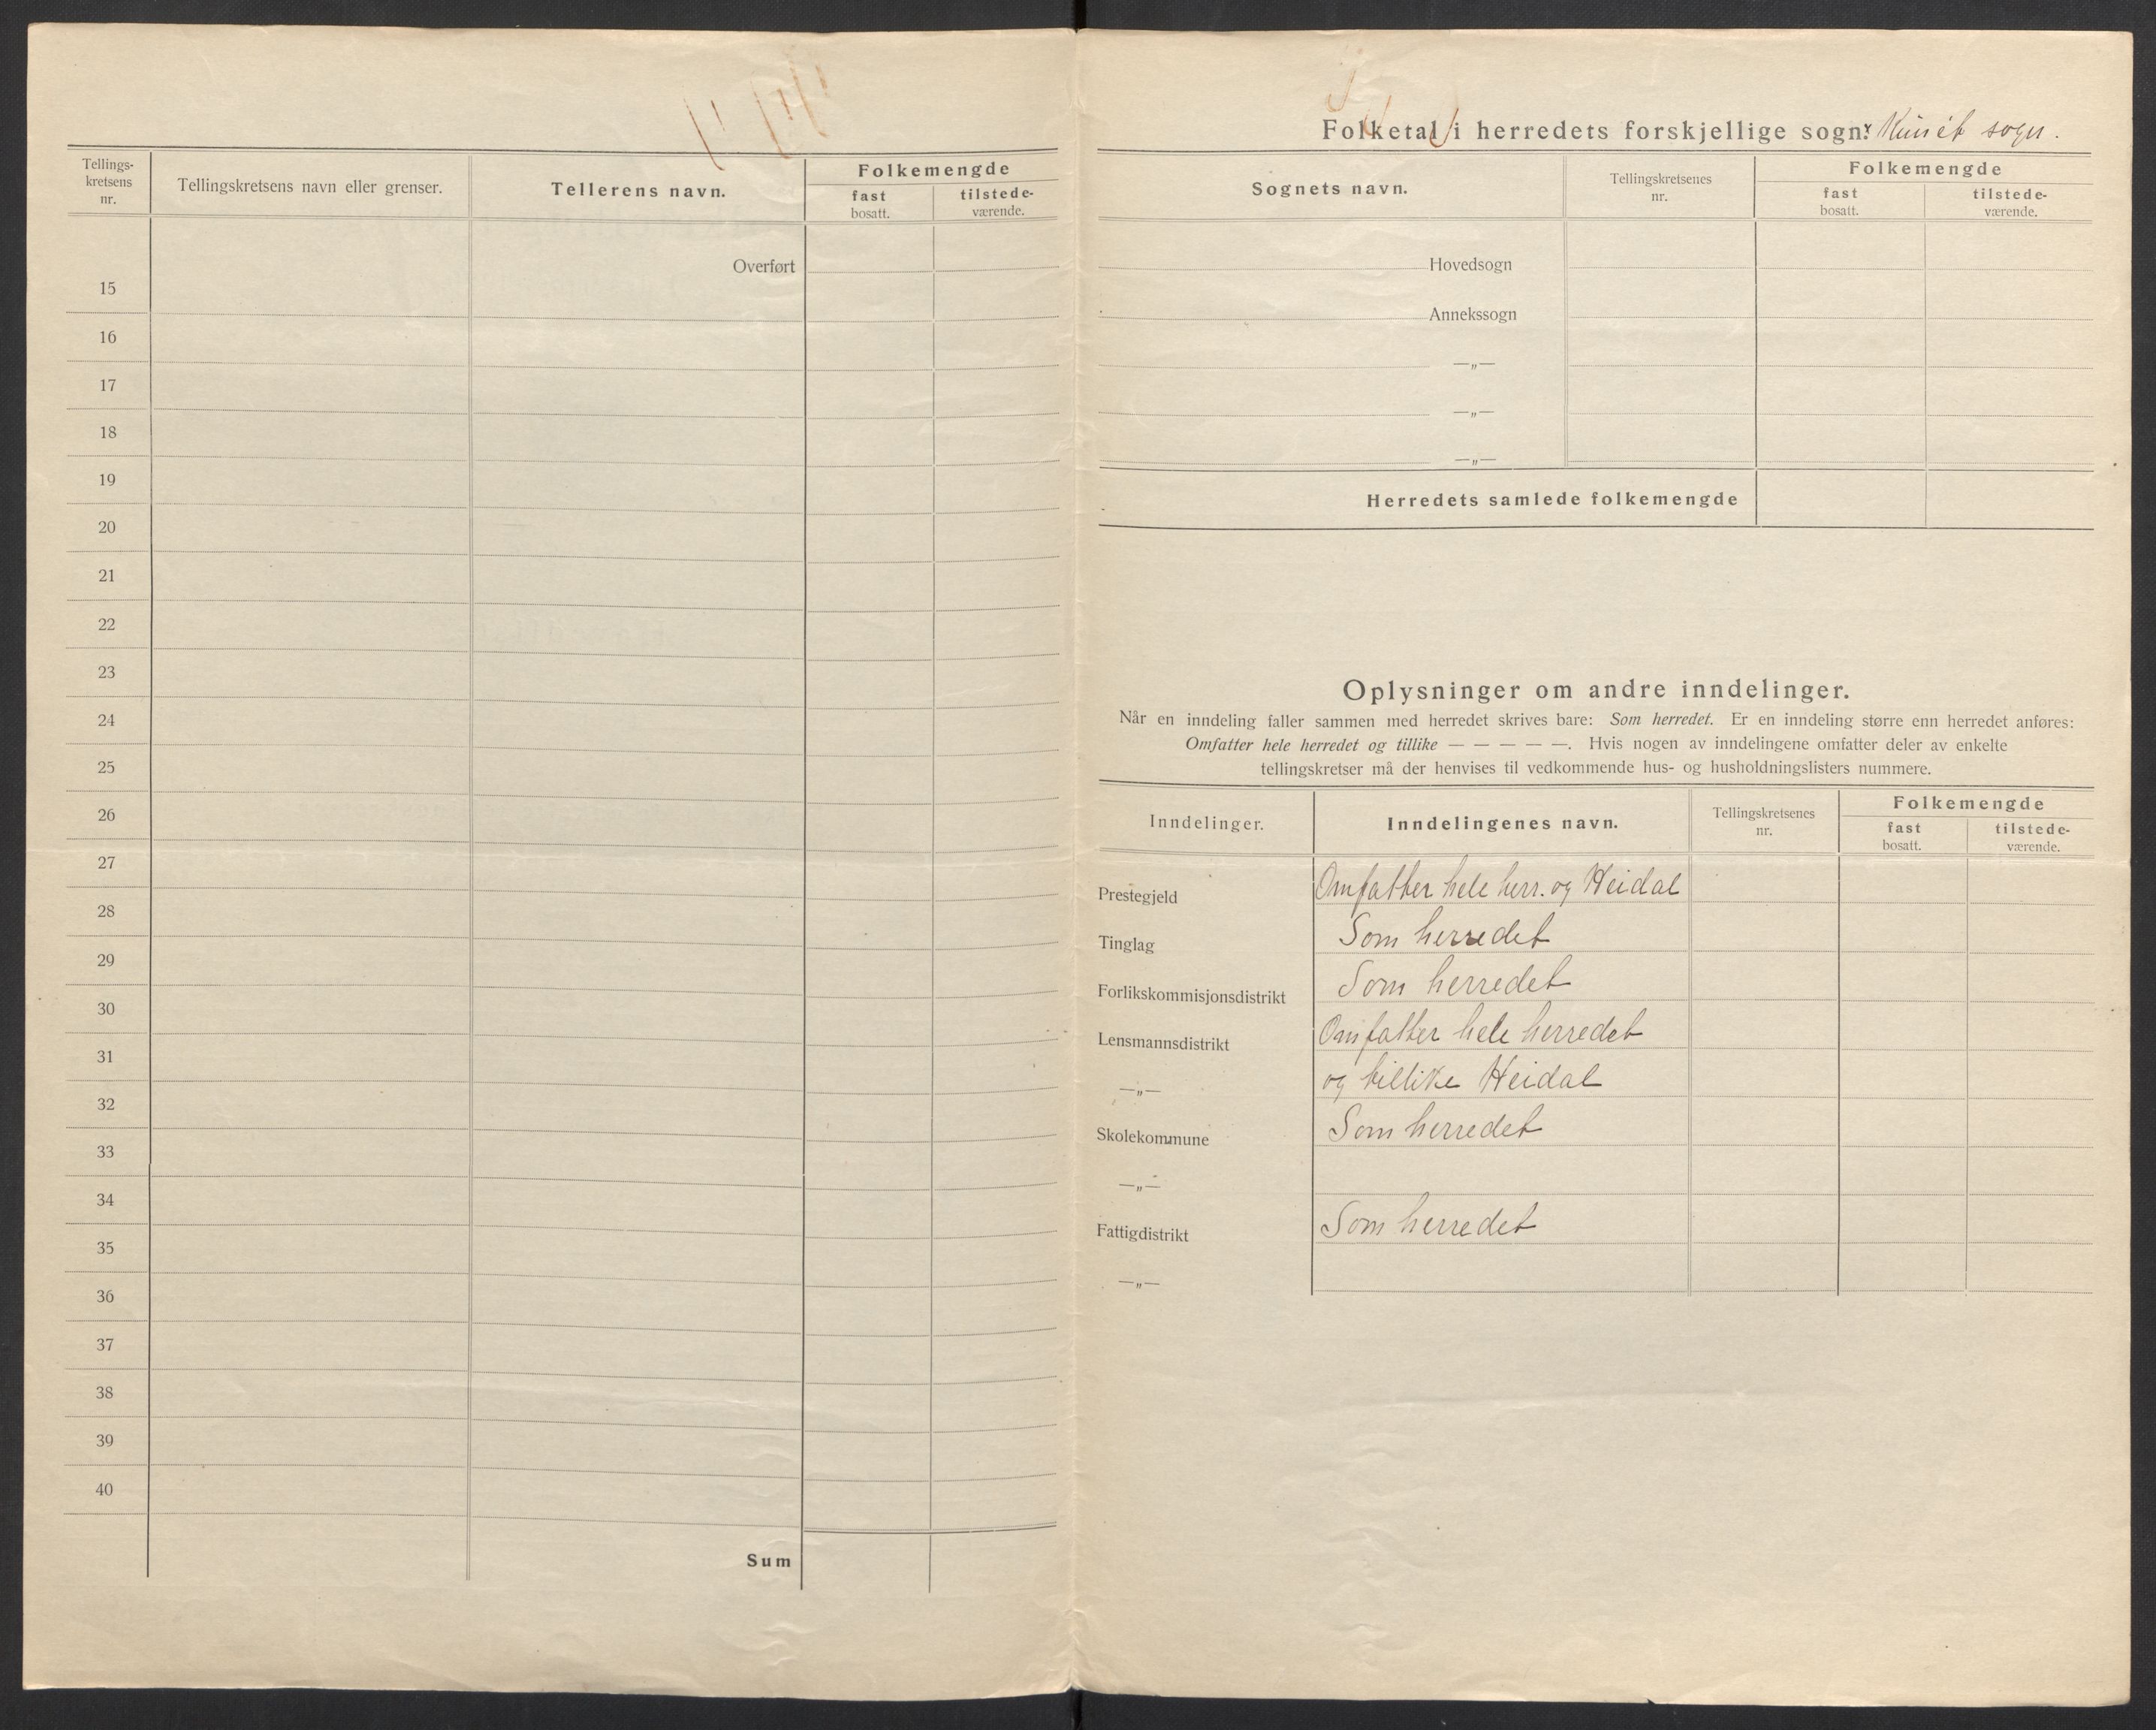 Tellings-
kretsens
nr.
Tellingskretsens navn eller grenser.
Tellerens navn.
Folkemengde
fast
bosatt.
tilstede-
værende.
Overført
15
16
17
18
19
20
21
22
23
24
25
26
27
28
29
30
31
32
33
34
35
36
37
38
39
40
Sum
Folketal i herredets forskjellige sogn: Kun ét sogn.
Sognets navn.
Tellingskretsenes
nr.
Folkemengde
fast
bosatt.
tilstede-
værende.
Hovedsogn
Annekssogn
—„—
—„—
—„—
Herredets samlede folkemengde
Oplysninger om andre inndelinger.
Når en inndeling faller sammen med herredet skrives bare: Som herredet. Er en inndeling større enn herredet anføres:
Omfatter hele herredet og tillike — — — — —. Hvis nogen av inndelingene omfatter deler av enkelte
tellingskretser må der henvises til vedkommende hus- og husholdningslisters nummere.
Inndelinger.
Inndelingenes navn.
Tellingskretsenes
nr.
Folkemengde
fast
bosatt.
tilstede-
værende.
Prestegjeld Omfatter hele herr. og Heidal
Tinglag Som herredet
Forlikskommisjonsdistrikt Som herredet
Lensmannsdistrikt Omfatter hele herredet
—„— og tillike Heidal
Skolekommune Som herredet
—„—
Fattigdistrikt Som herredet
—„—